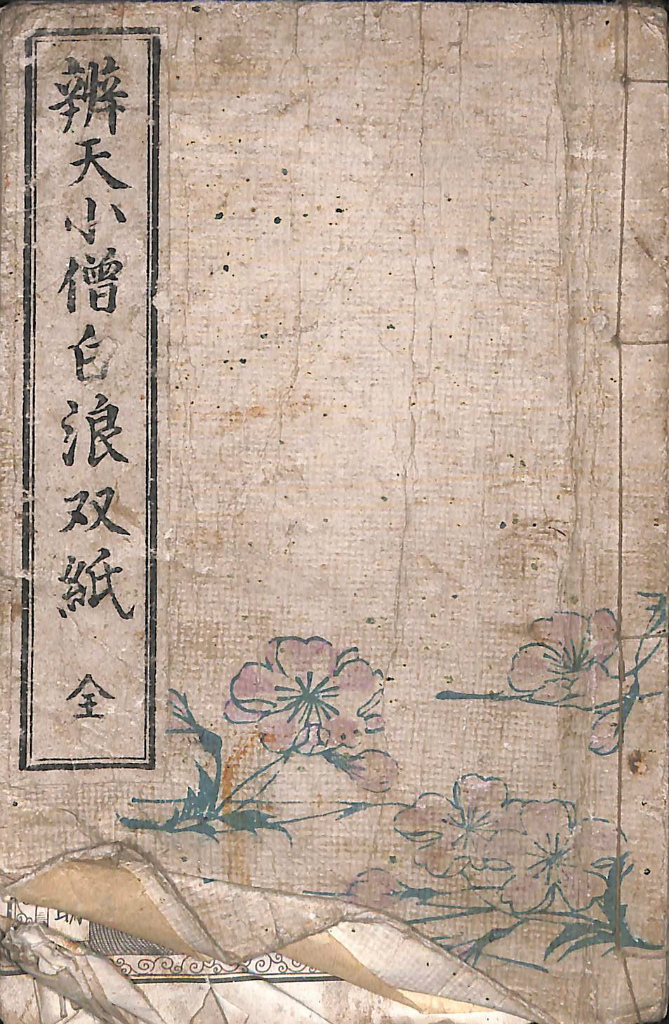 辨天小僧白浪双紙 全